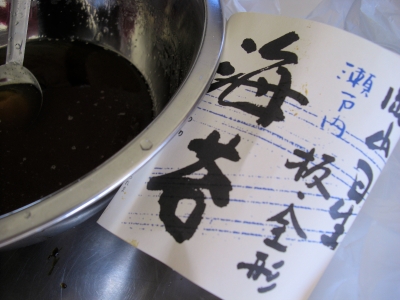 岡山日生
瀬戸内
板・全形
海苔